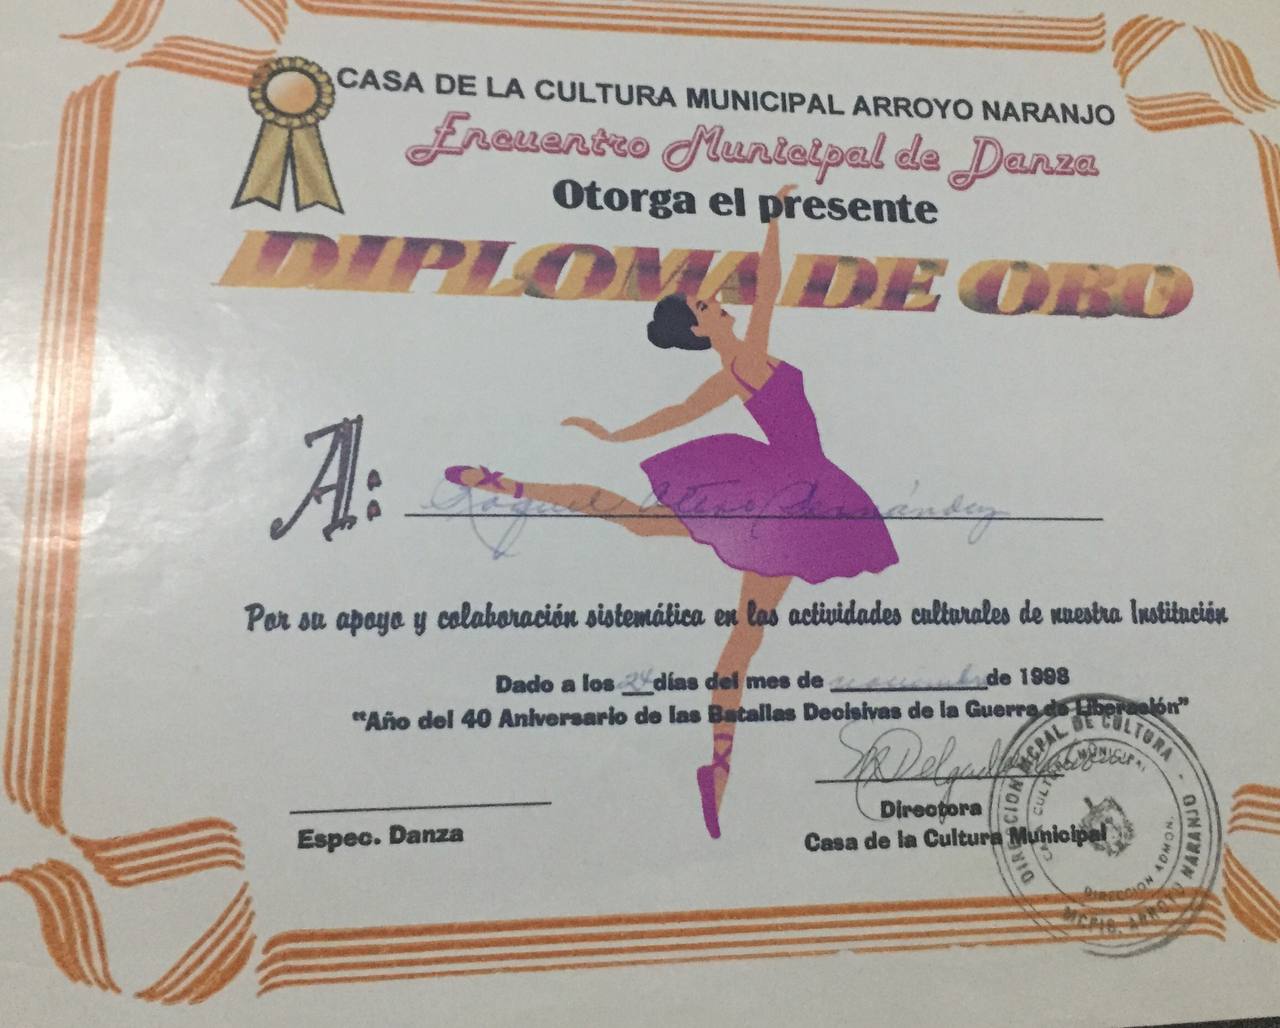 CASA DE LA CULTURA MUNICIPAL ARROYO NARANJO
Encuentro Municipal de Danza
Otorga el presente
DIPLOMA DE ORO
A:
Raquel Otero Hernández
Por su apoyo y colaboración sistemática en las actividades culturales de nuestra Institución
Dado a los 24 días del mes de noviembre de 1998
“Año del 40 Aniversario de las Batallas Decisivas de la Guerra de Liberación”
Delgado
Directora
Espec. Danza
Casa de la Cultura Municipal
DIRECCION MCPAL DE CULTURA - MCPIO. ARROYO NARANJO
CASA CULTURA MUNICIPAL
DIRECCION ADMON.